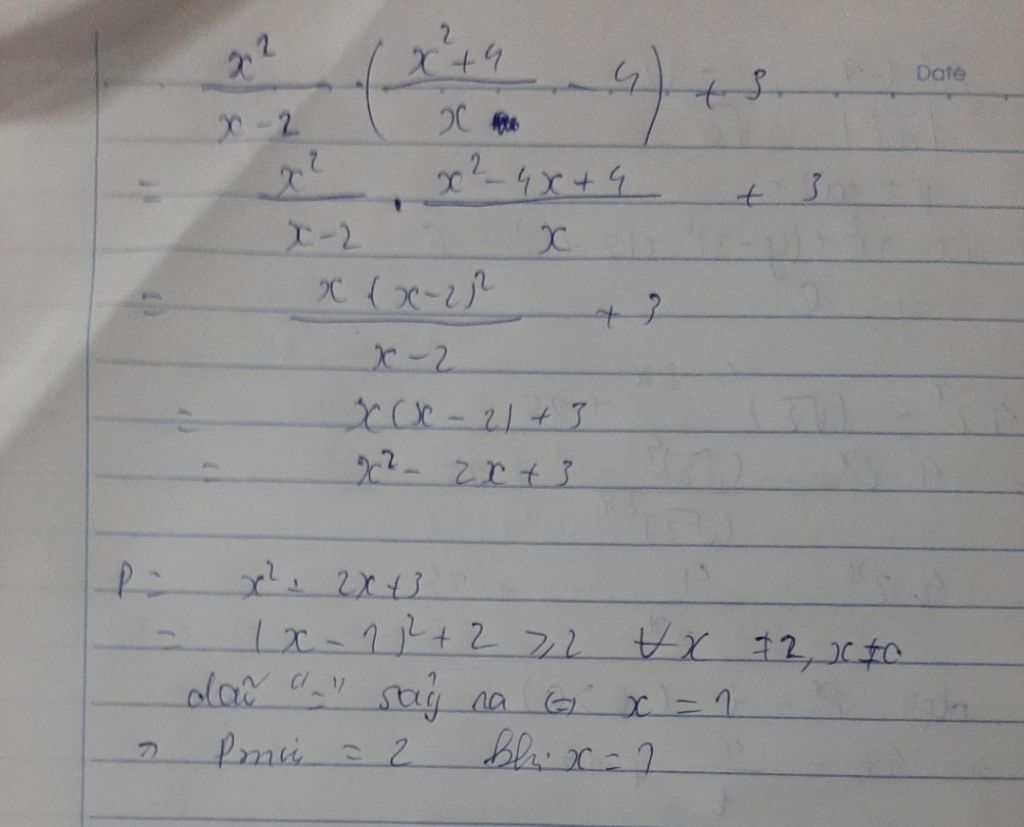 Date
x²/(x-2) · ((x²+4)/x - 4) + 3
= x²/(x-2) · (x²-4x+4)/x + 3
= x(x-2)²/(x-2) + 3
= x(x-2) + 3
= x² - 2x + 3
P = x² - 2x + 3
= (x-1)² + 2 ≥ 2 ∀x ≠ 2, x ≠ 0
dấu "=" sảy ra ⇔ x = 1
⇒ Pmin = 2 khi x = 1